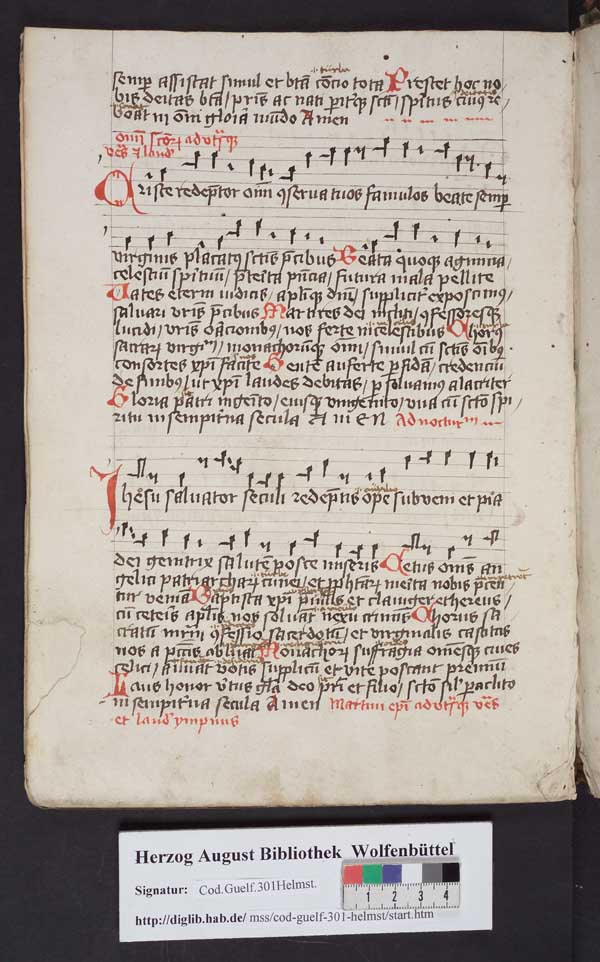 semp assistat simul et bta concio tota Prestet hoc no
bis deitas bta / pris ac nati pariterq scti / spiritus cuius re
boat in omi gloria mundo Amen
omi sctorum ad utrasq
ves et laud
Criste redemptor omi conserva tuos famulos beate semp
virginis placatus sctis precibus Beata quoque agmina /
celestium spirituum / preterita pncia / futura mala pellite
Vates eterni iudicis / aplique dni / suppliciter exposcimus /
salvari vestris precibus Martires dei incliti / confessoresque
lucidi / vestris oracionibus / nos ferte in celestibus Chorus
sacrarum virginum / monachorumque omi / simul cum sctis oibus
consortes xpi facite Gentem auferte perfidam / credencium
de finibus / ut xpi laudes debitas / persolvamus alacriter
Gloria patri ingenito / eiusque unigenito / una cum scto spi/
ritu in sempiterna secula A m E N Ad nocturn
Ihesu salvator seculi redemptis ope subveni et pia
dei genitrix salutem posce miseris Cetus omnis an
gelici patriarcharum cunei / et prophetarum merita nobis precen
tur veniam Baptista xpi previus et claviger ethereus /
cum ceteris aplis nos solvat nexu criminis Chorus sa
cratus martirum confessio sacerdotum / et virginalis castitas
nos a peccatis abluat Monachorum suffragia omnesque cives
celici / annuat votis supplicum et vite poscant premium
Laus honor virtus gla deo patri et filio / scto simul paraclito
in sempiterna secula Amen Martini epi ad utrasq ves
et laud ympnus
Herzog August Bibliothek Wolfenbüttel
Signatur: Cod.Guelf.301Helmst.
1 2 3 4
http://diglib.hab.de/ mss/cod-guelf-301-helmst/start.htm